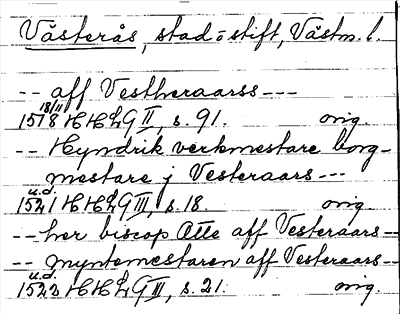 Västerås, stad o stift, Västm. l.
-- aff Vestheraarss ---
18/11
1518 HHLG II, s. 91. orig.
-- Hyndrik verkmestare borg-
mestare j Vesteraars ---
u.d.
1521 HHLG III, s. 18 orig.
-- her biscop Otte aff Vesteraars --
-- myntemestaren aff Vesteraars --
u.d.
1522 HHLG III, s. 21. orig.